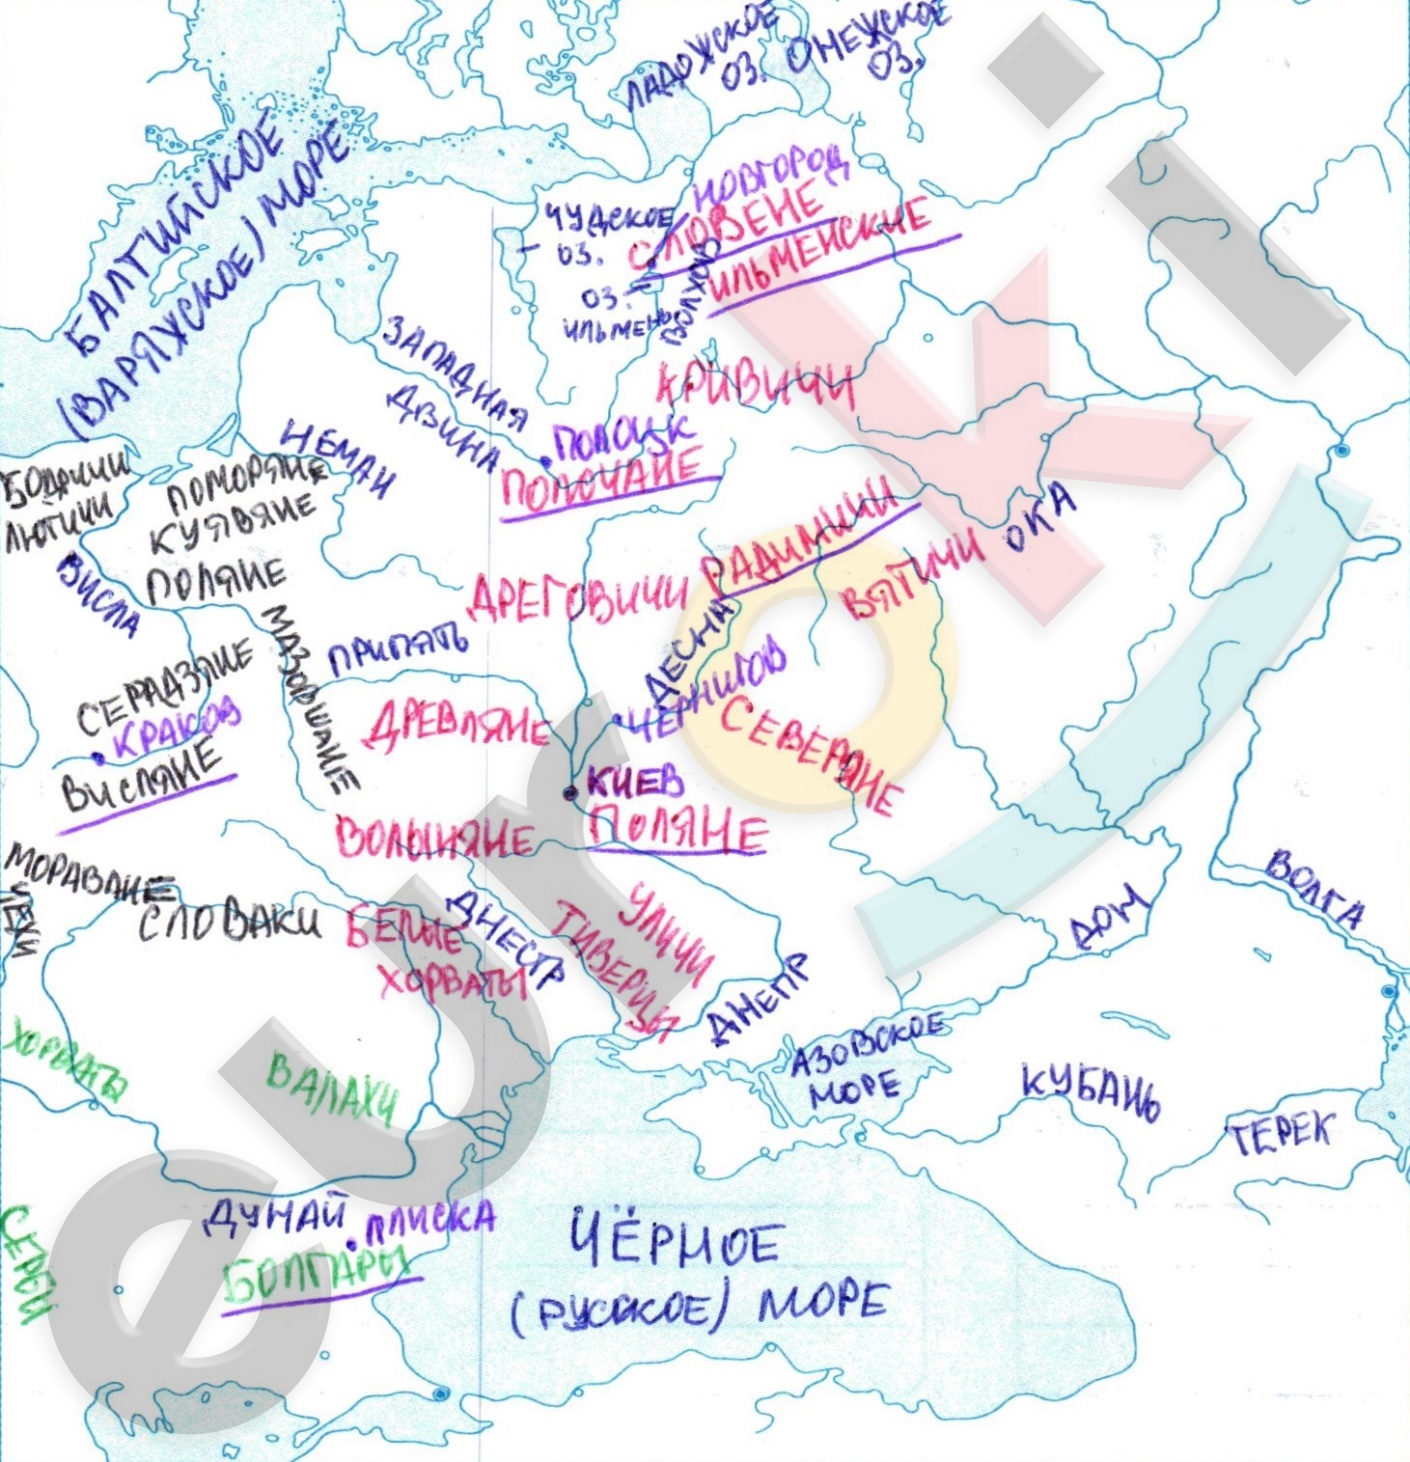 ЛАДОЖСКОЕ
ОЗ.
ОНЕЖСКОЕ
ОЗ.
БАЛТИЙСКОЕ
(ВАРЯЖСКОЕ) МОРЕ
НОВГОРОД
СЛОВЕНЕ
ИЛЬМЕНСКИЕ
ЧУДСКОЕ
ОЗ.
ОЗ.
ИЛЬМЕНЬ
ВОЛХОВ
ЗАПАДНАЯ
ДВИНА
КРИВИЧИ
НЕМАН
ПОЛОЦК
ПОЛОЧАНЕ
БОДРИЧИ
ЛЮТИЧИ
ПОМОРЯНЕ
КУЯВЯНЕ
ПОЛЯНЕ
ВИСЛА
МАЗОВШАНЕ
РАДИМИЧИ
ВЯТИЧИ
ОКА
ДРЕГОВИЧИ
ДЕСНА
ПРИПЯТЬ
СЕРАДЗЯНЕ
КРАКОВ
ВИСЛЯНЕ
ДРЕВЛЯНЕ
ЧЕРНИГОВ
СЕВЕРЯНЕ
КИЕВ
ПОЛЯНЕ
ВОЛЫНЯНЕ
МОРАВАНЕ
ЧЕХИ
СЛОВАКИ
БЕЛЫЕ
ХОРВАТЫ
ДНЕСТР
УЛИЧИ
ТИВЕРЦЫ
ДНЕПР
ДОН
ВОЛГА
ХОРВАТЫ
ВАЛАХИ
АЗОВСКОЕ
МОРЕ
КУБАНЬ
ТЕРЕК
СЕРБЫ
ДУНАЙ
ПЛИСКА
БОЛГАРЫ
ЧЁРНОЕ
(РУССКОЕ) МОРЕ
euroki